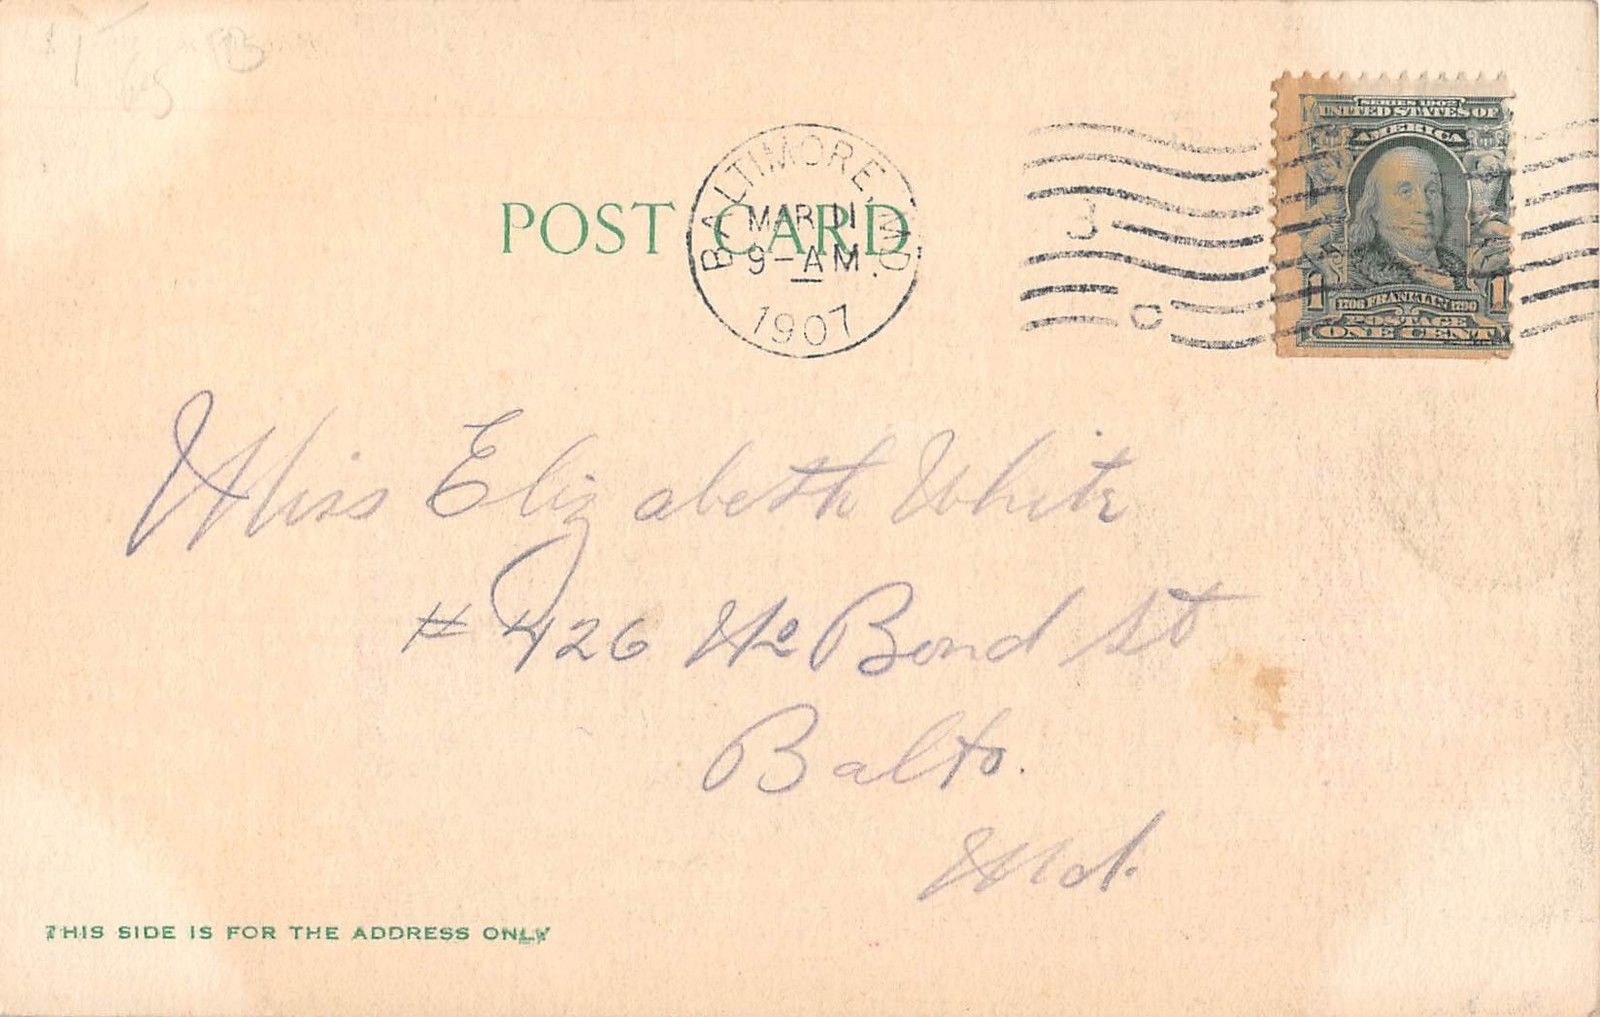 POST CARD
BALTIMORE, MD.
MAR 11
9-AM
1907
3
C
SERIES 1902
UNITED STATES OF
AMERICA
1 1706 FRANKLIN 1790 1
POSTAGE
ONE CENT
Miss Elizabeth White
# 426 No Bond St
Balto.
Md.
THIS SIDE IS FOR THE ADDRESS ONLY